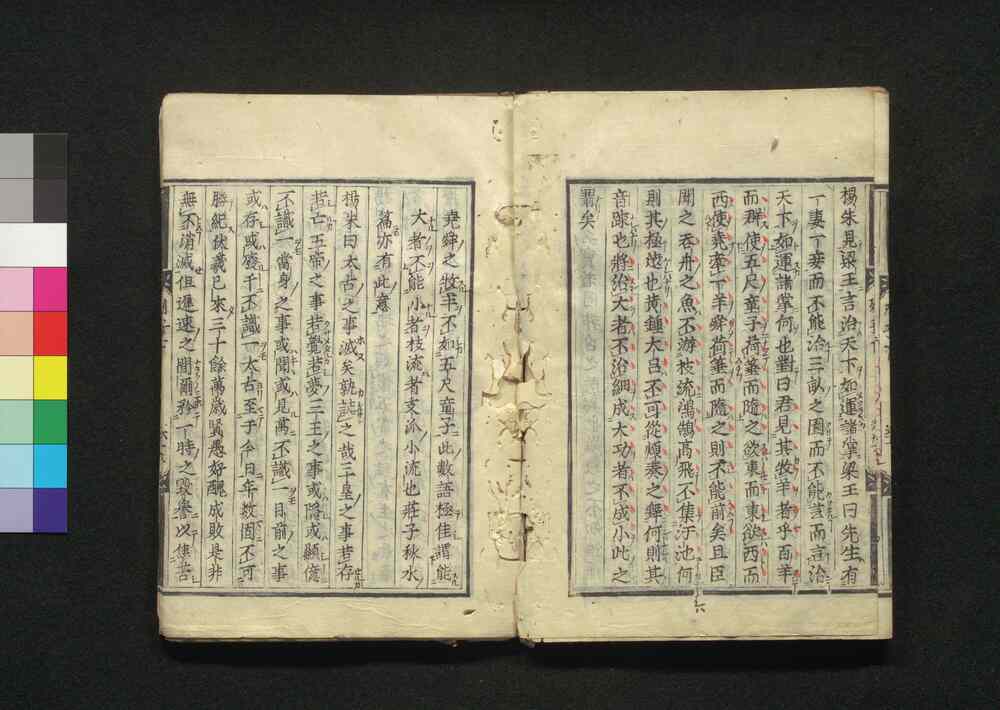 楊朱見梁王言治天下如運諸掌梁王曰先生有
一妻一妾而不能治三畝之園而不能芸而言治
天下如運諸掌何也對曰君見其牧羊者乎百羊
而群使五尺童子荷箠而隨之欲東而東欲西而
西使堯牽一羊舜荷箠而隨之則不能前矣且臣
聞之吞舟之魚不游枝流鴻鵠高飛不集汙池何
則其極遠也黃鍾大呂不可從煩奏之舞何則其
音踈也將治大者不治細成大功者不成小此之
謂矣
堯舜之牧羊不如五尺童子此數語極佳謂能
大者不能小者枝流者支派小流也莊子秋水
篇亦有此意
楊朱曰太古之事滅矣孰誌之哉三皇之事若存
若亡五帝之事若覺若夢三王之事或隱或顯億
不識一當身之事或聞或見萬不識一目前之事
或存或廢千不識一太古至于今日年數固不可
勝紀伏羲已來三十餘萬歲賢愚好醜成敗是非
無不消滅但遲速之間爾矜一時之毀譽以焦苦